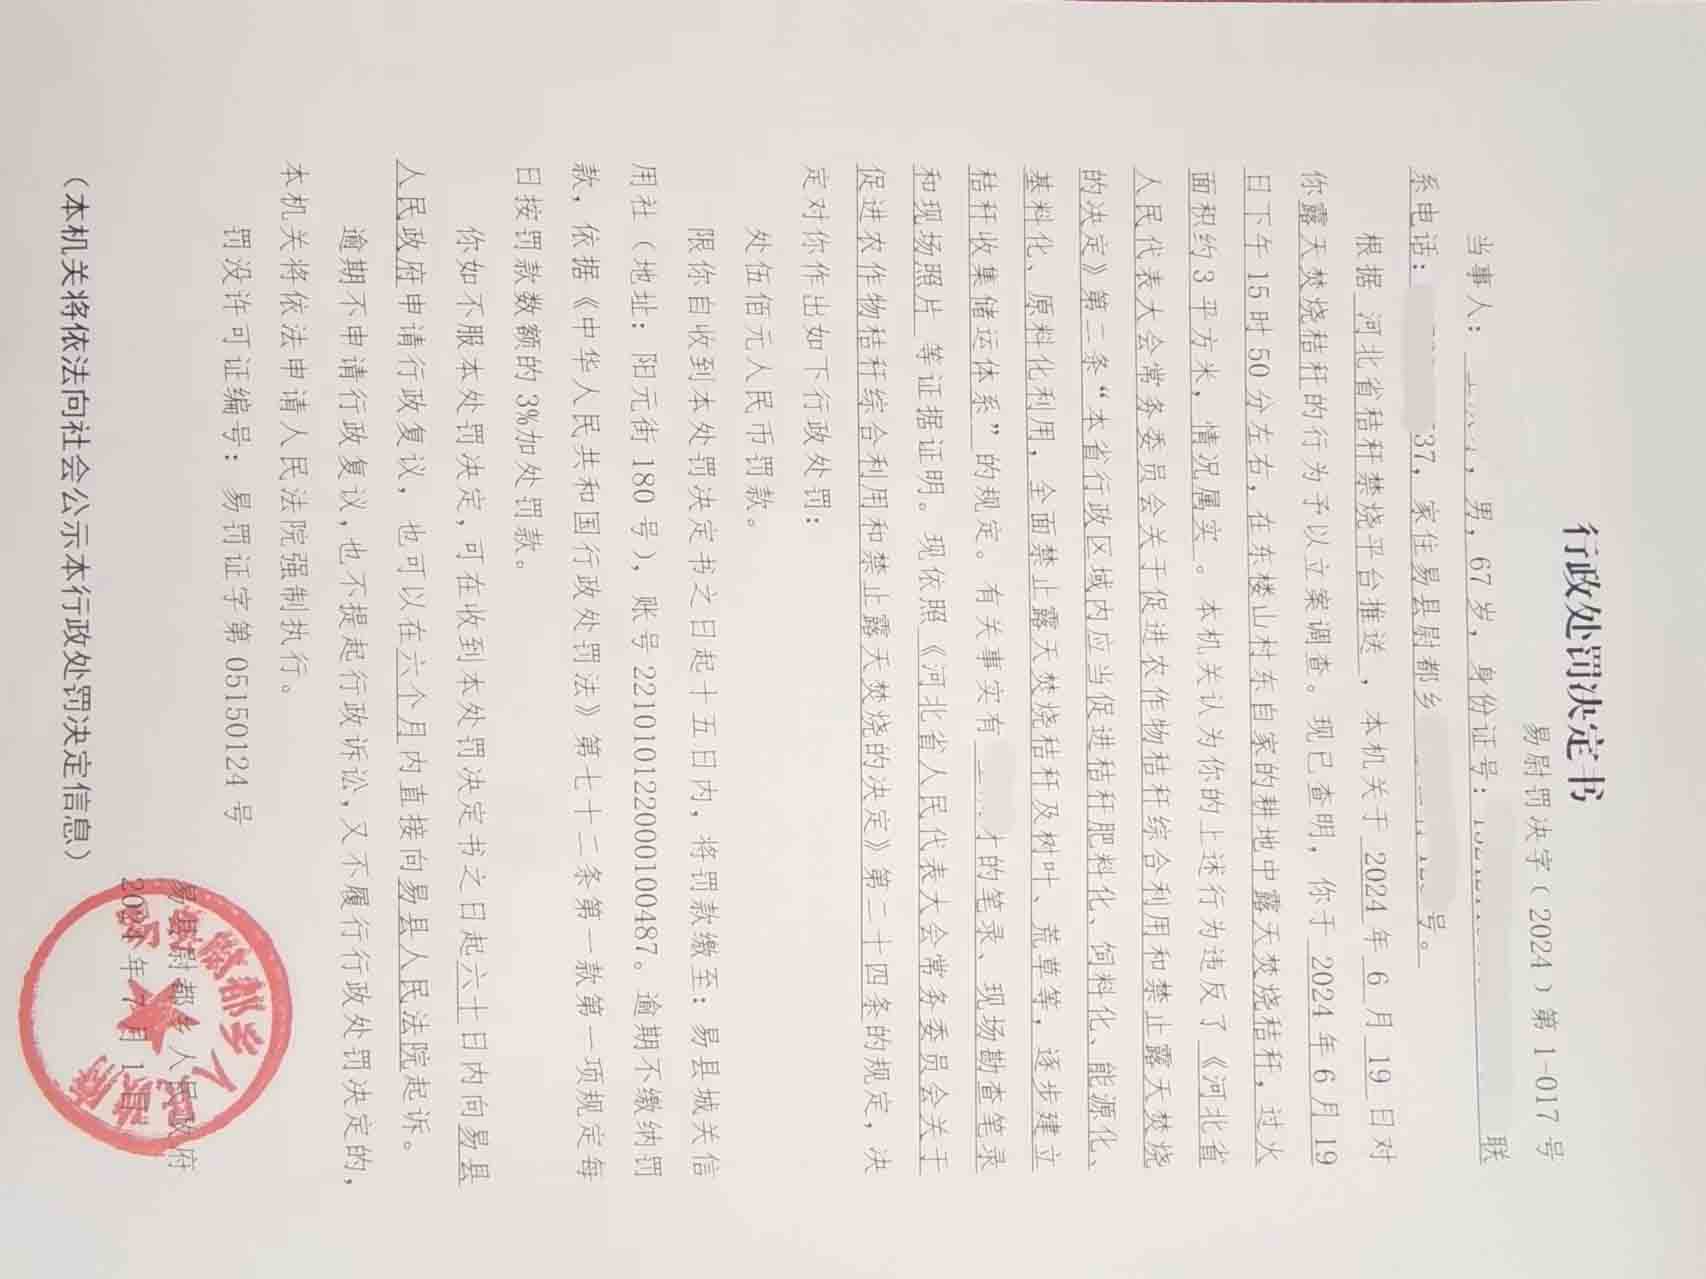 行政处罚决定书
易尉罚决字（2024）第 1-017 号
当事人：，男，67 岁，身份证号：联
系电话：37，家住易县尉都乡号。
根据 河北省秸秆禁烧平台推送 ，本机关于 2024 年 6 月 19 日对
你露天焚烧秸秆的行为予以立案调查。现已查明，你于 2024 年 6 月 19
日下午 15 时 50 分左右，在东楼山村东自家的耕地中露天焚烧秸秆，过火
面积约 3 平方米，情况属实 。本机关认为你的上述行为违反了 《河北省
人民代表大会常务委员会关于促进农作物秸秆综合利用和禁止露天焚烧
的决定》第二条“本省行政区域内应当促进秸秆肥料化、饲料化、能源化、
基料化、原料化利用，全面禁止露天焚烧秸秆及树叶、荒草等，逐步建立
秸秆收集储运体系”的规定。有关事实有 的笔录、现场勘查笔录
和现场照片 等证据证明。现依照 《河北省人民代表大会常务委员会关于
促进农作物秸秆综合利用和禁止露天焚烧的决定》第二十四条的规定，决
定对你作出如下行政处罚：
处伍佰元人民币罚款。
限你自收到本处罚决定书之日起十五日内，将罚款缴至：易县城关信
用社（地址：阳元街 180 号），账号 221010122000100487。逾期不缴纳罚
款，依据《中华人民共和国行政处罚法》第七十二条第一款第一项规定每
日按罚款数额的 3%加处罚款。
你如不服本处罚决定，可在收到本处罚决定书之日起六十日内向易县
人民政府申请行政复议，也可以在六个月内直接向易县人民法院起诉。
逾期不申请行政复议，也不提起行政诉讼，又不履行行政处罚决定的，
本机关将依法申请人民法院强制执行。
罚没许可证编号：易罚证字第 05150124 号
易县尉都乡人民政府
2024 年 7 月 1 日
（本机关将依法向社会公示本行政处罚决定信息）